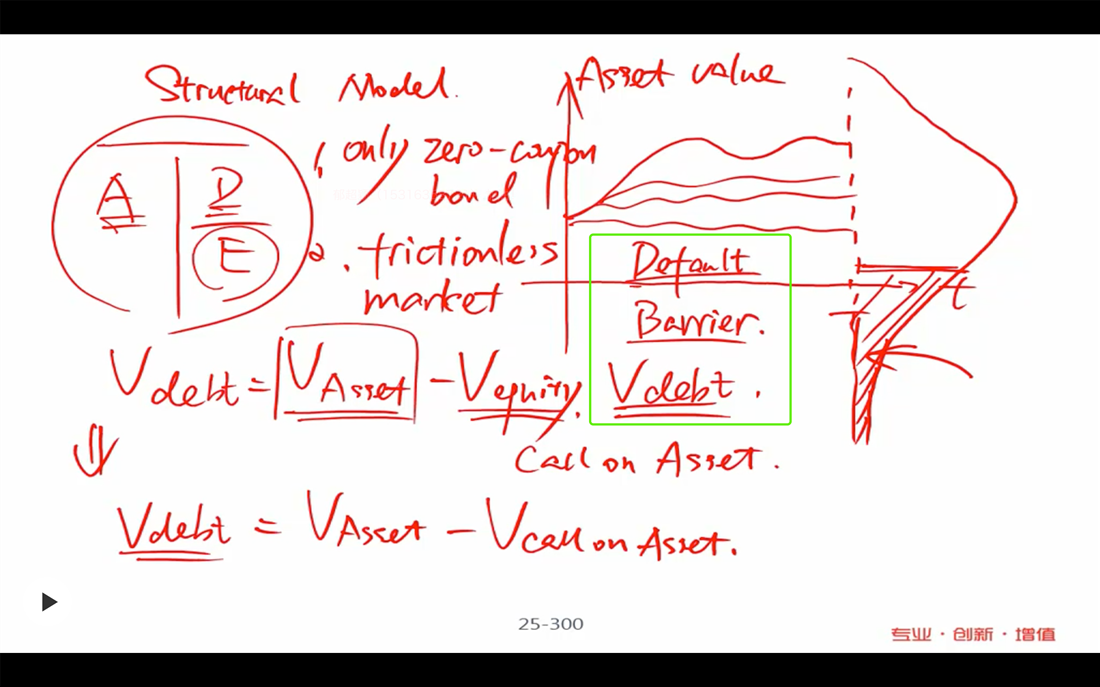 Structural Model.
Asset value
A
D
E
1. only zero-coupon
bond
2. frictionless
market
Default
Barrier.
Vdebt.
t
Vdebt = VAsset - Vequity.
Call on Asset.
Vdebt = VAsset - Vcall on Asset.
25-300
专业·创新·增值